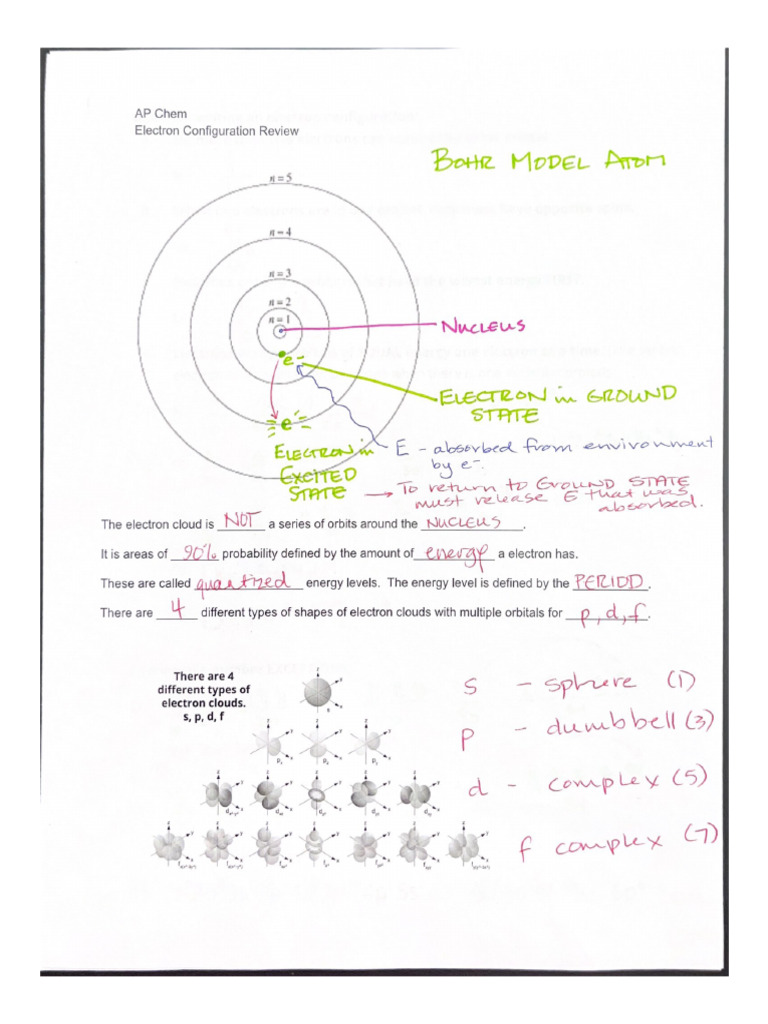 AP Chem
Electron Configuration Review
BOHR MODEL ATOM
n = 5
n = 4
n = 3
n = 2
n = 1
NUCLEUS
e-
ELECTRON in GROUND
STATE
e-
ELECTRON in
EXCITED
STATE
E - absorbed from environment
by e-.
→ To return to GROUND STATE
must release E that was
absorbed.
The electron cloud is NOT a series of orbits around the NUCLEUS.
It is areas of 90% probability defined by the amount of energy a electron has.
These are called quantized energy levels. The energy level is defined by the PERIOD.
There are 4 different types of shapes of electron clouds with multiple orbitals for p, d, f.
There are 4
different types of
electron clouds.
s, p, d, f
s - sphere (1)
p - dumbbell (3)
d - complex (5)
f complex (7)